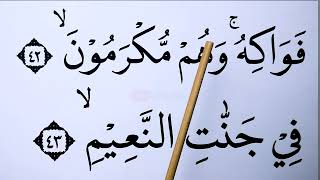 فَوَاكِهُ ۚ وَهُمْ مُّكْرَمُوْنَ ۙ ﴿٤٢﴾
فِيْ جَنّٰتِ النَّعِيْمِ ۙ ﴿٤٣﴾